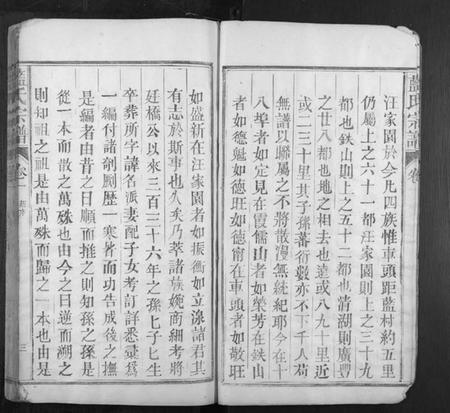 藍氏宗譜
卷
汪家園於今凡四族惟車頭距藍村約五里
仍屬上之六十一都汪家園則上之三十九
都也鉄山則上之五十二都也清湖則廣豐
之廿八都也地之相去也遠或八九十里近
或二三十里其子孫蕃衍數亦不下千人苟
無譜以聯屬之不將散漫無統紀耶今在十
八埠者如定見在霞儒山者如榮芳在鉄山
者如德魁如德旺如德甯在車頭者如敢旺
如盛新在汪家園者如振衡如立淥諸君其
有志於斯事也久矣乃萃諸族婉商細考將
廷橋公以來三百三十六年之孫七子七生
卒葬所字諱名派妻配子女考訂詳悉彙為
一編付諸剞劂歷一寒暑而功告成後之撫
是編者由昔之日順而推之則知孫之孫是
從一本而散之萬殊也由今之日逆而溯之
則知祖之祖是由萬殊而歸之一本也由是
藍氏宗譜
卷一
三